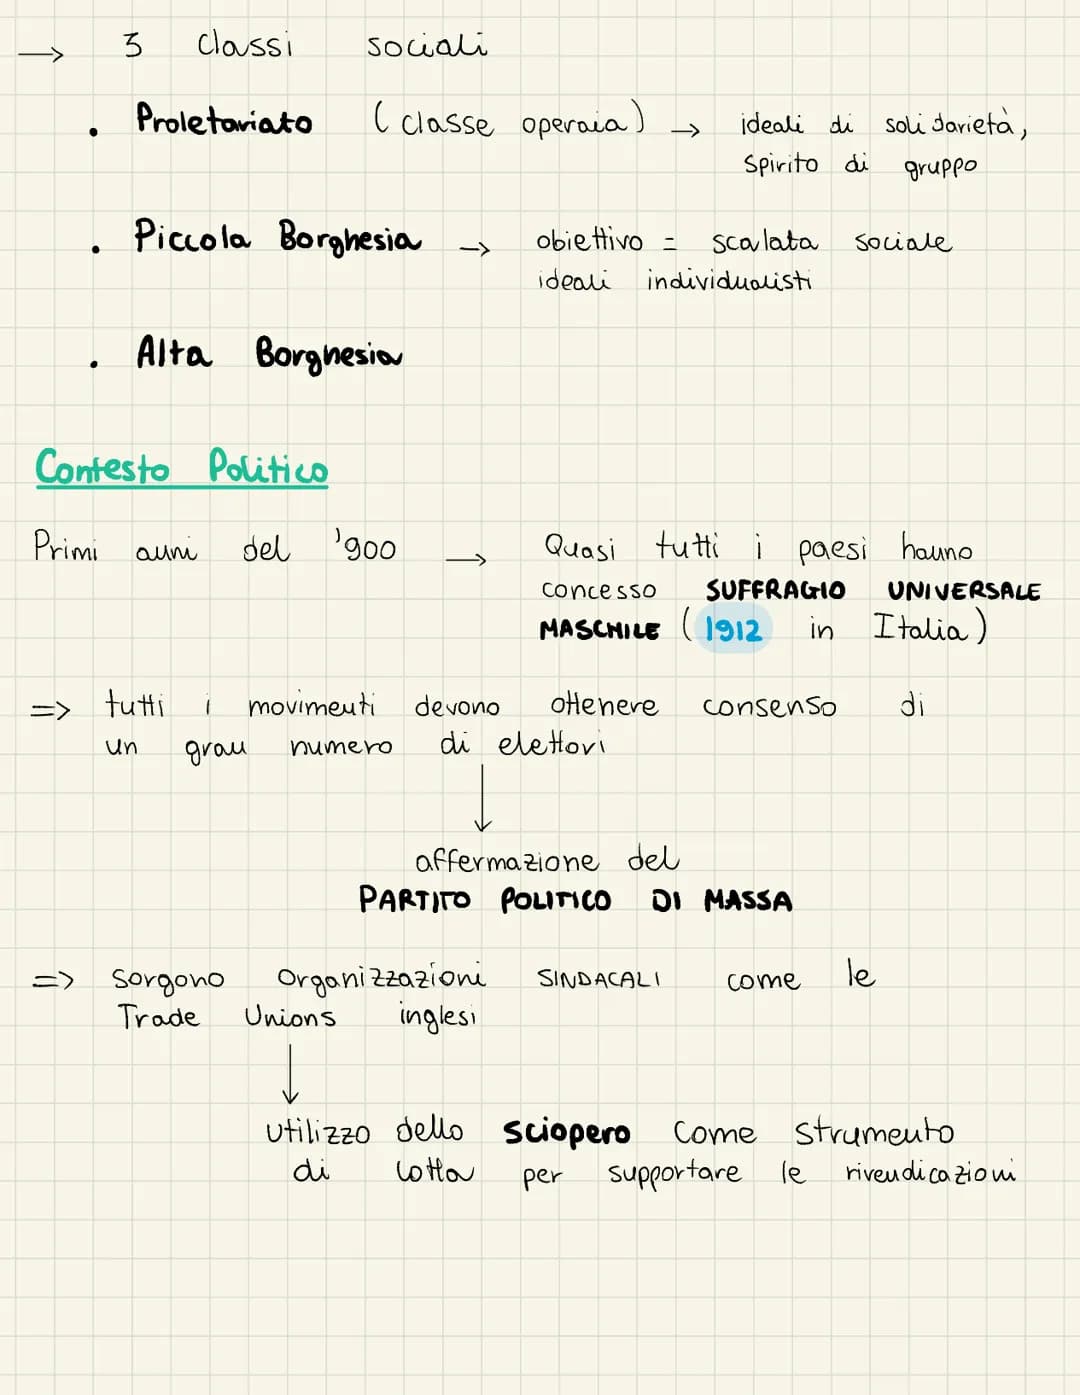 → 3 classi sociali
• Proletariato (classe operaia) → ideali di solidarietà,
spirito di gruppo
• Piccola Borghesia → obiettivo = scalata sociale
ideali individualisti
• Alta Borghesia
Contesto Politico
Primi anni del '900 → Quasi tutti i paesi hanno
concesso SUFFRAGIO UNIVERSALE
MASCHILE (1912 in Italia)
=> tutti i movimenti devono ottenere consenso di
un gran numero di elettori
↓
affermazione del
PARTITO POLITICO DI MASSA
=> sorgono organizzazioni SINDACALI come le
Trade Unions inglesi
↓
utilizzo dello sciopero come strumento
di lotta per supportare le rivendicazioni